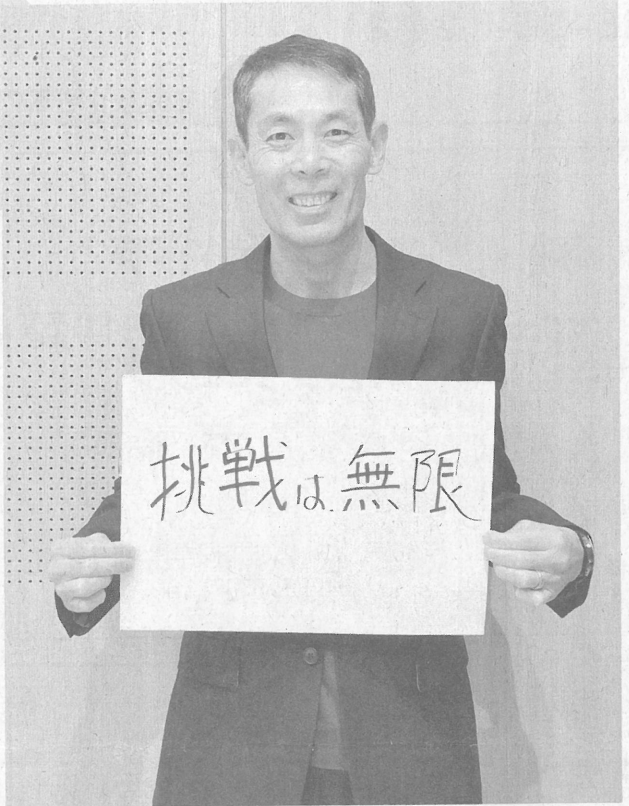 挑戦は無限